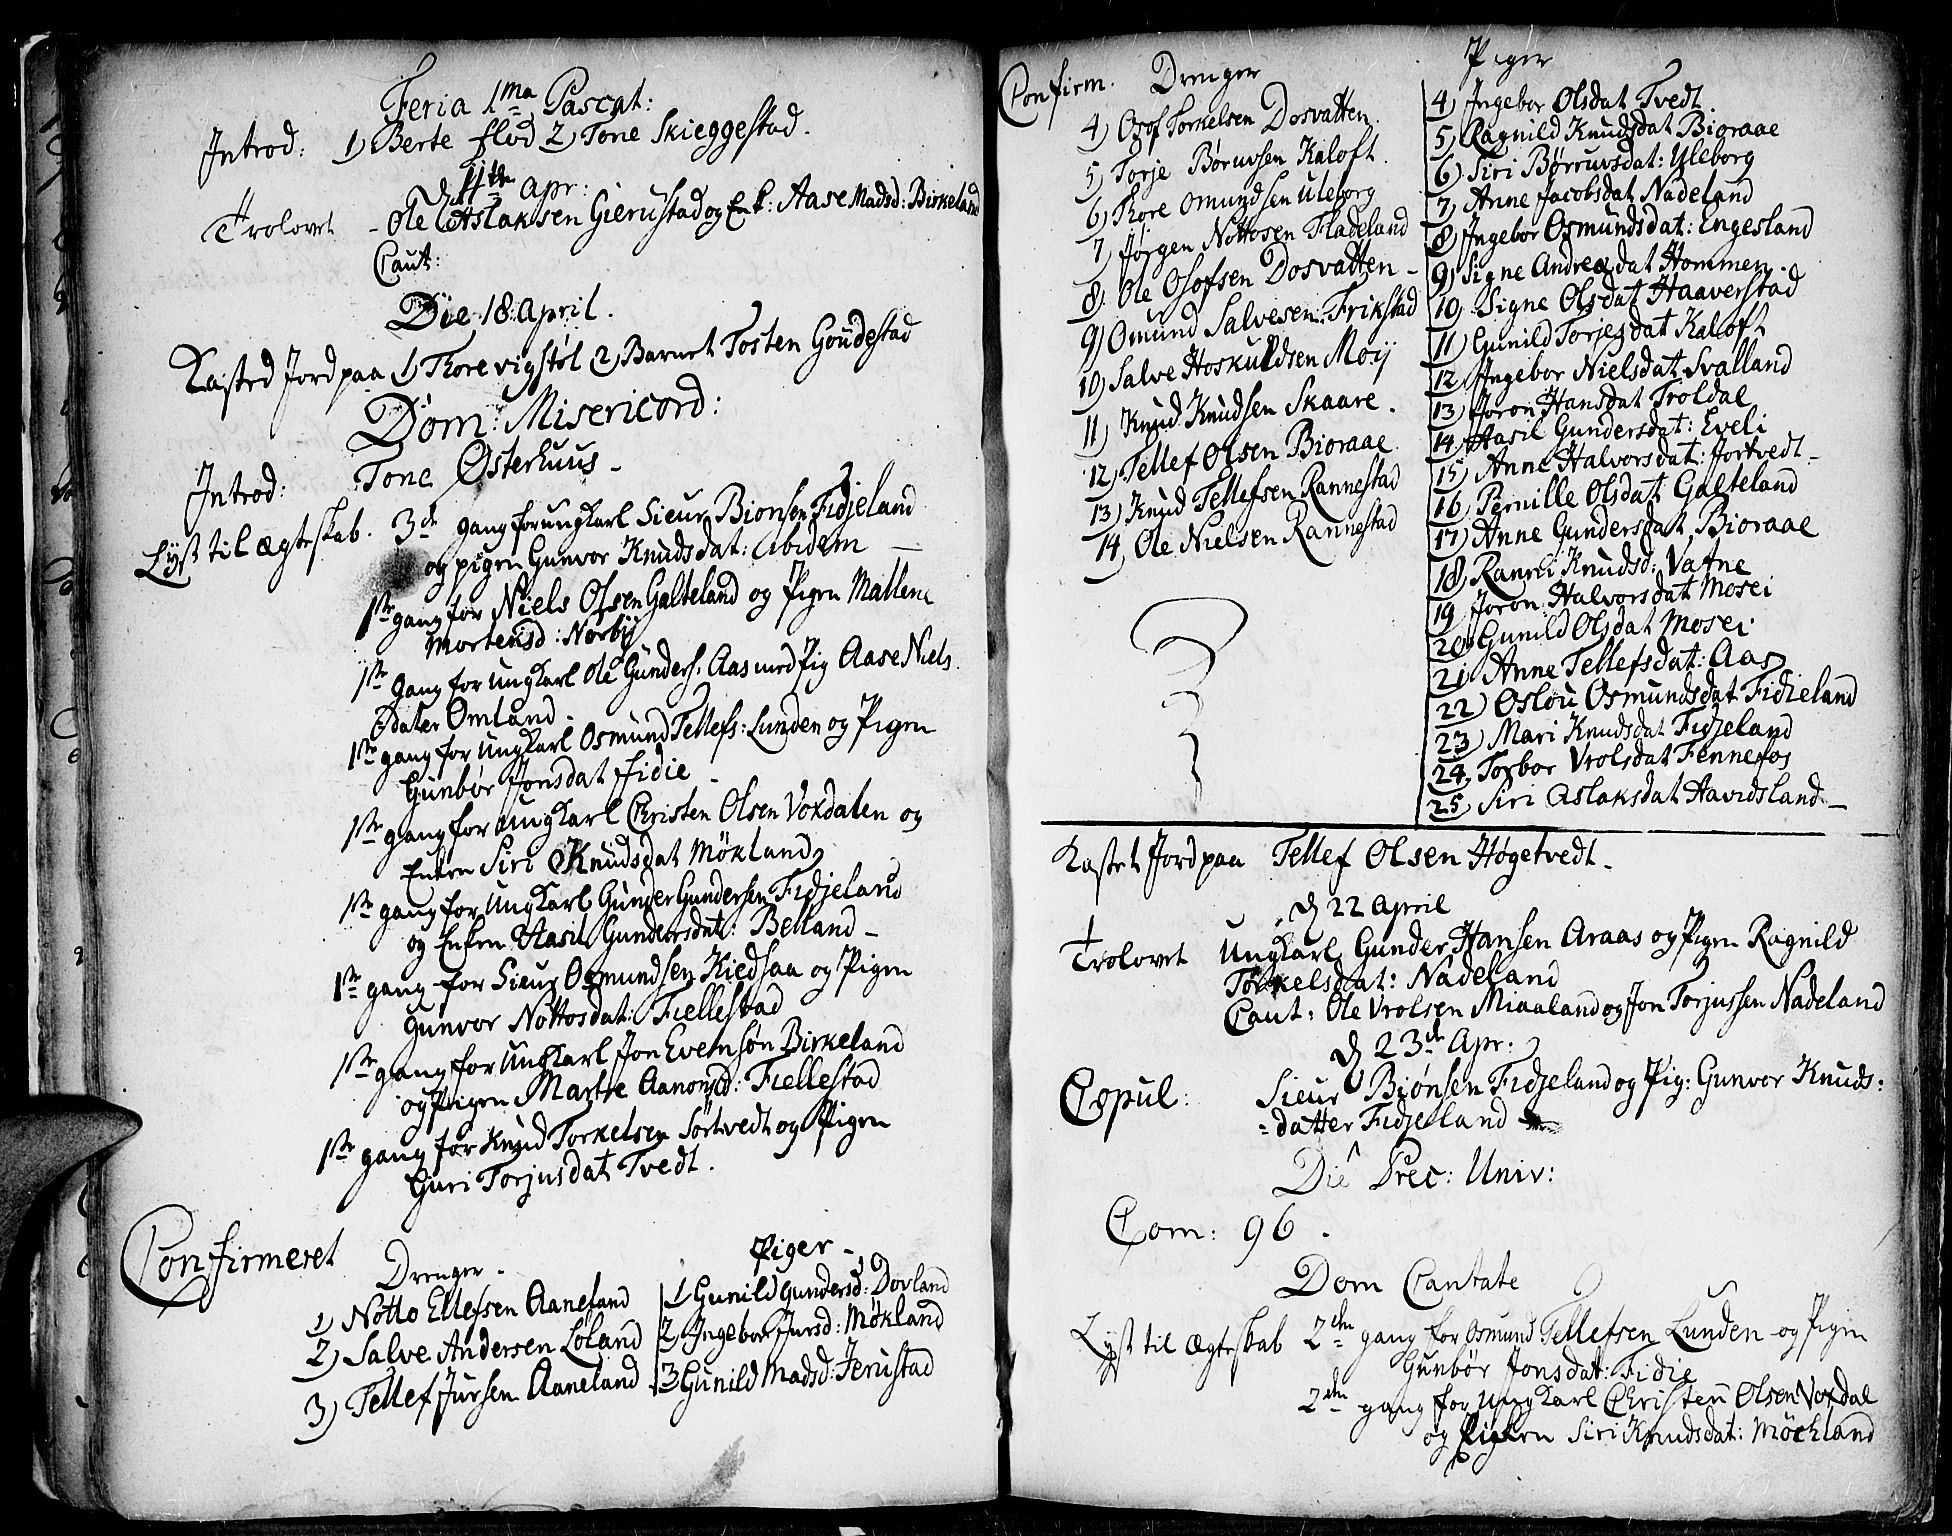 Feria 1ma Pascat:
Introd: 1) Berte Flod 2) Tone Skieggestad.
D 11te Apr:
Trolovet - Ole Aslaksen Gierustad og Enk: Aase Madsd: Birkeland
Caut:
Die 18. April.
Kasted Jord paa 1) Thore Vigstøl 2) Barnet Tosten Goudestad
Dom: Misericord:
Introd: Tone Østerhuus -
Lyst til Ægteskab. 3de gang for ungKarl Sieur Bionsen Fidjeland
og pigen Gunvor Knudsdat: ibidem —
1ste gang for Niels Olsen Galteland og Pigen Mallene
Mortensd: Norbÿ
1ste gang for ungKarl Ole Gunders: Aas med Pig Aase Niels
dater Omland.
1ste gang for ungKarl Osmund Tellefs: Lunden og Pigen
Gunbør Jonsdat Fidie -
1ste gang for ungKarl Christen Olsen Voxdalen og
Enken Siri Knudsdat Møkland
1ste gang for UngKarl Gunder Gundersen Fidjeland
og Enken Aasil Gundersdat: Belland -
1ste gang for Sieur Osmundsen Kiedsaa og Pigen
Gunvor Nottosdat: Fiellestad
1ste gang for ungKarl Jon Evensøn Birkeland
og Pigen Marthe Aanonsd: Fiellestad
1ste gang for Knud Torkelsen Sørtvedt og Pigen
Guri Torjusdat Tvedt.
Confirmeret Drenger - Piger -
1) Notto Ellefsen Aaneland 1 Gunild Gundersd: Dovland
2) Salve Andersen Løland 2) Ingebor Jursd: Møkland
3) Tellef Jursen Aaneland 3 Gunild Madsd: Jerustad
Confirm. Drenger
4) Osof Torkelsen Dosvatten.
5) Torje Børuvsen Kaloft.
6) Thore Omundsen Uleborg
7) Jørgen Nottosen Fladeland
8) Ole Osofsen Dosvatten -
9) Omund Salvesen Frikstad
10) Salve Hoskuldsen Moÿ
11) Knud Knudsen Skaare.
12) Tellef Olsen Bioraae
13) Knud Tellefsen Rannestad
14, Ole Nielsen Rannestad
Piger
4) Ingebor Olsdat Tvedt.
5) Ragnild Knudsdat Bioraae
6) Siri Børruvsdat: Uleborg
7) Anne Jacobsdat Nadeland
8) Ingebor Osmundsdat: Engesland
9) Signe Andreadat Hommen.
10 Signe Olsdat Haaverstad
11) Gunild Torjesdat Kaloft
12 Ingebor Nielsdat Svalland
13) Joron Hansdat Troldal
14) Aasil Gundersdat: Eveli
15) Anne Halvorsdat: Jortvedt -
16 Pernille Olsdat Galteland
17) Anne Gundersdat Bioraae
18) Rannei Knudsd: Vatne
19 Joron Halvorsdat Mosei
20) Gunild Olsdat Mosei
21 Anne Tellefsdat: Aas
22) Oslou Osmundsdat Fidieland
23) Mari Knudsdat Fidjeland
24, Torbor Vrolsdat Fennefos
25) Siri Aslaksdat Havidsland —
Kastet Jord paa Tellef Olsen Høgetvedt -
D 22 April
Trolovet UngKarl Gunder Hansen Araas og Pigen Ragnild
Torkelsdat: Nadeland
Caut: Ole Vrolsen Miaaland og Jon Torjussen Nadeland
D 23de Apr:
Copul: Sieur Biønsen Fidjeland og Pig: Gunvor Knuds:
=datter Fidjeland
Die Prec: Univ:
Com: 96.
Dom Cantate
Lyst til Ægteskab 2den gang for Osmund Tellefsen Lunden og Pigen
Gunbør Jonsdat: Fidie
2den gang for ungKarl Christen Olsen Voxdal
og Siri Knudsdat: Möckland